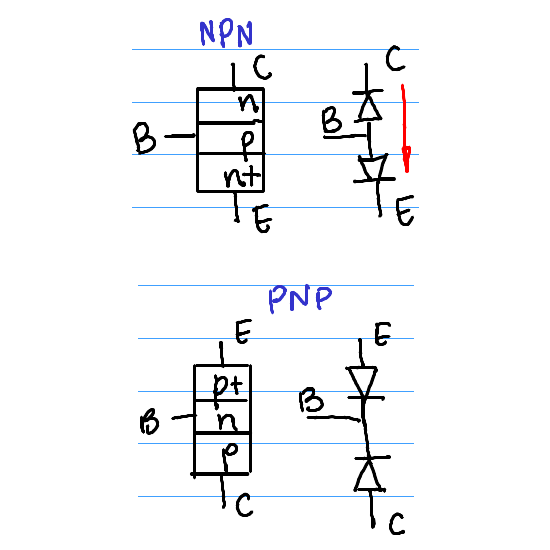 NPN
C
n
B
p
n+
E
C
B
E
PNP
E
p+
B
n
p
C
E
B
C